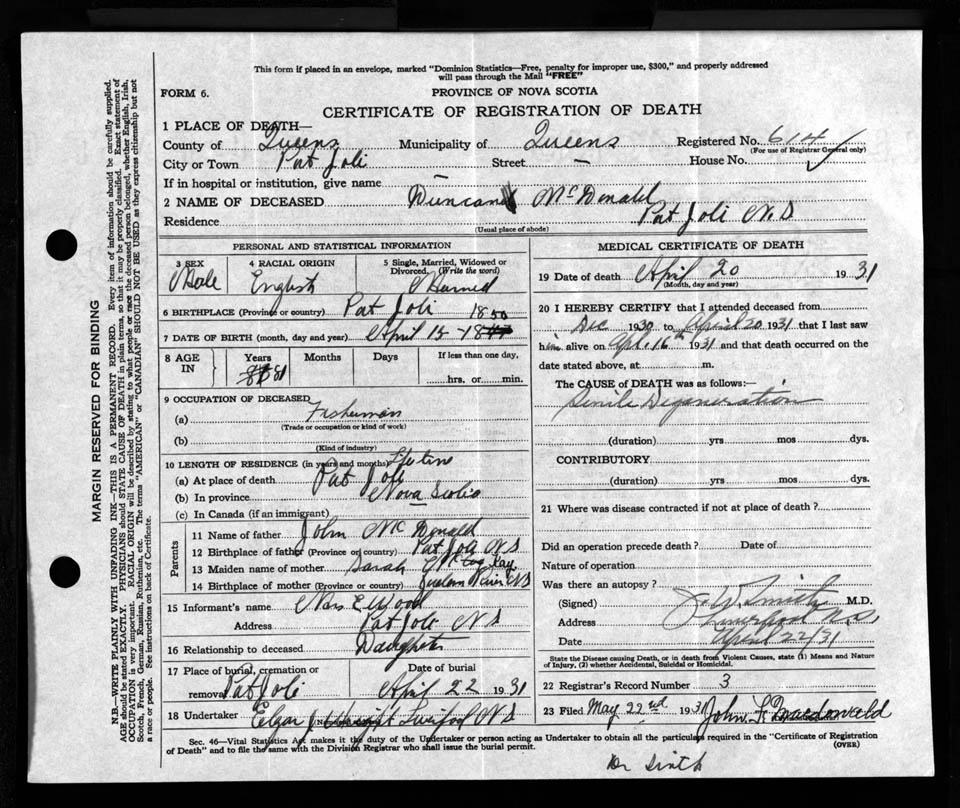 This form if placed in an envelope, marked "Dominion Statistics—Free, penalty for improper use, $300," and properly addressed
will pass through the Mail "FREE"
FORM 6.
PROVINCE OF NOVA SCOTIA
CERTIFICATE OF REGISTRATION OF DEATH
1 PLACE OF DEATH—
County of Queens Municipality of Queens Registered No. 614
(For use of Registrar General only)
City or Town Pat Joli Street — House No.
If in hospital or institution, give name —
2 NAME OF DECEASED Duncan McDonald
Residence Pat Joli N.S
(Usual place of abode)
PERSONAL AND STATISTICAL INFORMATION
3 SEX 4 RACIAL ORIGIN 5 Single, Married, Widowed or
Divorced. (Write the word)
Male English Married
6 BIRTHPLACE (Province or country) Pat Joli
1850
7 DATE OF BIRTH (month, day and year) April 15 - 18
8 AGE IN Years Months Days If less than one day,
81 hrs. or min.
9 OCCUPATION OF DECEASED
(a) Fisherman
(Trade or occupation or kind of work)
(b)
(Kind of industry)
10 LENGTH OF RESIDENCE (in years and months) Lifetime
(a) At place of death Pat Joli
(b) In province Nova Scotia
(c) In Canada (if an immigrant)
Parents
11 Name of father John McDonald
12 Birthplace of father (Province or country) Pat Joli N S
13 Maiden name of mother Sarah
14 Birthplace of mother (Province or country) N S
15 Informant's name Mrs E Wood
Address Pat Joli N S
16 Relationship to deceased Daughter
17 Place of burial, cremation or Date of burial
removal Pat Joli April 22 1931
18 Undertaker Liverpool N S
MEDICAL CERTIFICATE OF DEATH
19 Date of death April 20 1931
(Month, day and year)
20 I HEREBY CERTIFY that I attended deceased from
Dec 1930 to April 20 1931 that I last saw
him alive on Apl. 16th 1931 and that death occurred on the
date stated above, at m.
The CAUSE of DEATH was as follows:—
Senile Degeneration
(duration) yrs mos dys.
CONTRIBUTORY
(duration) yrs mos dys.
21 Where was disease contracted if not at place of death?
Did an operation precede death? Date of
Nature of operation
Was there an autopsy?
(Signed) J. W. Smith M.D.
Address N.S.
Date April 22/31
State the Disease causing Death, or in death from Violent Causes, state (1) Means and Nature
of Injury, (2) whether Accidental, Suicidal or Homicidal.
22 Registrar's Record Number 3
23 Filed May 22nd 1931 John Macdonald
Sec. 46—Vital Statistics Act makes it the duty of the Undertaker or person acting as Undertaker to obtain all the particulars required in the "Certificate of Registration
of Death" and to file the same with the Division Registrar who shall issue the burial permit.
(OVER)
Dr Smith
MARGIN RESERVED FOR BINDING
N.B.—WRITE PLAINLY WITH UNFADING INK—THIS IS A PERMANENT RECORD. Every item of information should be carefully supplied.
AGE should be stated EXACTLY. PHYSICIANS should STATE CAUSE OF DEATH in plain terms, so that it may be properly classified. Exact statement of
OCCUPATION is very important. RACIAL ORIGIN will be described by stating to what people or race the deceased person belonged, whether English, Irish,
Scotch, French, German, Russian, Ruthenian, etc. The terms "AMERICAN" or "CANADIAN" SHOULD NOT BE USED as they express citizenship but not
a race or people. See instructions on back of Certificate.